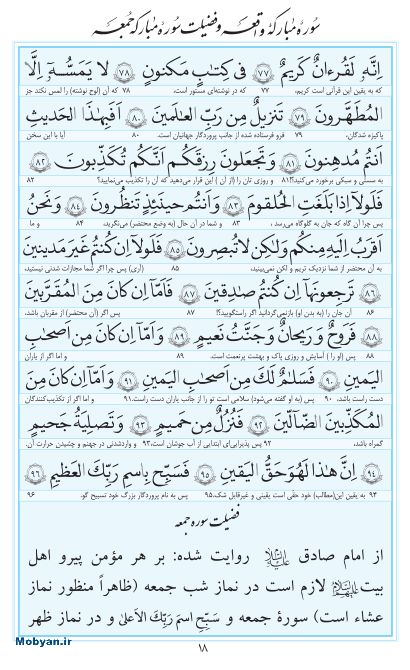 سورهٔ مبارکهٔ واقعه و فضیلت سورهٔ مبارکهٔ جمعه
اِنَّهُ لَقُرءانٌ كَريمٌ ﴿٧٧﴾ في كِتابٍ مَكنونٍ ﴿٧٨﴾ لا يَمَسُّهُ اِلَّا
که به یقین این قرآنی است کریم، ۷۷ که در نوشته‌ای مستور است، ۷۸ که آن (لوح نوشته) را لمس نکند جز
المُطَهَّرونَ ﴿٧٩﴾ تَنزيلٌ مِن رَبِّ العالَمينَ ﴿٨٠﴾ اَفَبِهٰذَا الحَديثِ
پاکیزه شدگان، ۷۹ فرو فرستاده شده از جانب پروردگار جهانیان است. ۸۰ آیا با این سخن
اَنتُم مُدهِنونَ ﴿٨١﴾ وَ تَجعَلونَ رِزقَكُم اَنَّكُم تُكَذِّبونَ ﴿٨٢﴾
به سستی و سبکی برخورد می‌کنید؟! ۸۱ و روزی تان را (از آن) این قرار می‌دهید که آن را تکذیب می‌نمایید؟ ۸۲
فَلَولا اِذا بَلَغَتِ الحُلقومَ ﴿٨٣﴾ وَ اَنتُم حينَئِذٍ تَنظُرونَ ﴿٨٤﴾ وَ نَحنُ
پس چرا آن گاه که جان به گلوگاه می‌رسد، ۸۳ و شما در آن حال (به وضع محتضر) می‌نگرید، ۸۴ و ما
اَقرَبُ اِلَيهِ مِنكُم وَلٰكِن لا تُبصِرونَ ﴿٨٥﴾ فَلَولا اِن كُنتُم غَيرَ مَدينينَ
به آن محتضر از شما نزدیک تریم و لکن نمی‌بینید، ۸۵ (آری) پس چرا اگر شما مجازات شدنی نیستید،
﴿٨٦﴾ تَرجِعونَها اِن كُنتُم صادِقينَ ﴿٨٧﴾ فَاَمّا اِن كانَ مِنَ المُقَرَّبينَ
۸۶ آن جان را (به بدن او) بازنمی‌گردانید اگر راستگویید؟! ۸۷ پس اگر (آن محتضر) از مقربان باشد،
﴿٨٨﴾ فَرَوحٌ وَ رَيحانٌ وَ جَنَّتُ نَعيمٍ ﴿٨٩﴾ وَ اَمّا اِن كانَ مِن اَصحابِ
۸۸ پس (او را) آسایش و روزی پاک و بهشت پرنعمت است. ۸۹ و اما اگر از یاران
اليَمينِ ﴿٩٠﴾ فَسَلامٌ لَكَ مِن اَصحابِ اليَمينِ ﴿٩١﴾ وَ اَمّا اِن كانَ مِنَ
دست راست باشد. ۹۰ پس (به او گفته می‌شود) سلامی است تو را از جانب یاران دست راست. ۹۱ و اما اگر از تکذیب‌کنندگان
المُكَذِّبينَ الضّالّينَ ﴿٩٢﴾ فَنُزُلٌ مِن حَميمٍ ﴿٩٣﴾ وَ تَصلِيَةُ جَحيمٍ
گمراه باشد، ۹۲ پس پذیرایی‌ای ابتدایی از آب جوشان است، ۹۳ و واردشدنی در جهنم و چشیدن حرارت آن.
﴿٩٤﴾ اِنَّ هٰذا لَهُوَ حَقُّ اليَقينِ ﴿٩٥﴾ فَسَبِّح بِاسمِ رَبِّكَ العَظيمِ ﴿٩٦﴾
۹۴ به یقین این (مطالب) خود حقی است یقینی و غیرقابل شک. ۹۵ پس به نام پروردگار بزرگ خود تسبیح گو. ۹۶
فضیلت سوره جمعه
از امام صادق علیه‌السلام روایت شده: بر هر مؤمن پیرو اهل
بیت علیهم‌السلام لازم است در نماز شب جمعه (ظاهراً منظور نماز
عشاء است) سورهٔ جمعه و سَبِّحِ اسمَ رَبِّكَ الاَعلیٰ و در نماز ظهر
۱۸
Mobyan.ir